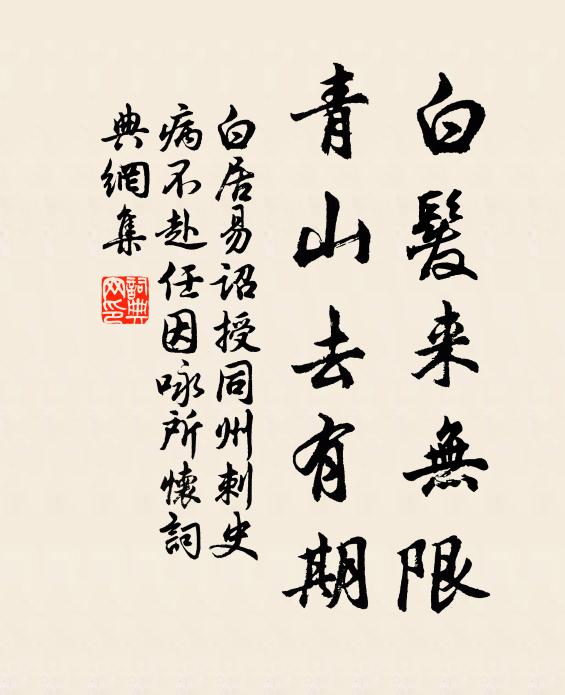 白髮来無限
青山去有期
白居易詔授同州刺史
病不赴任因咏所懷詞
典網集
詞典
网印